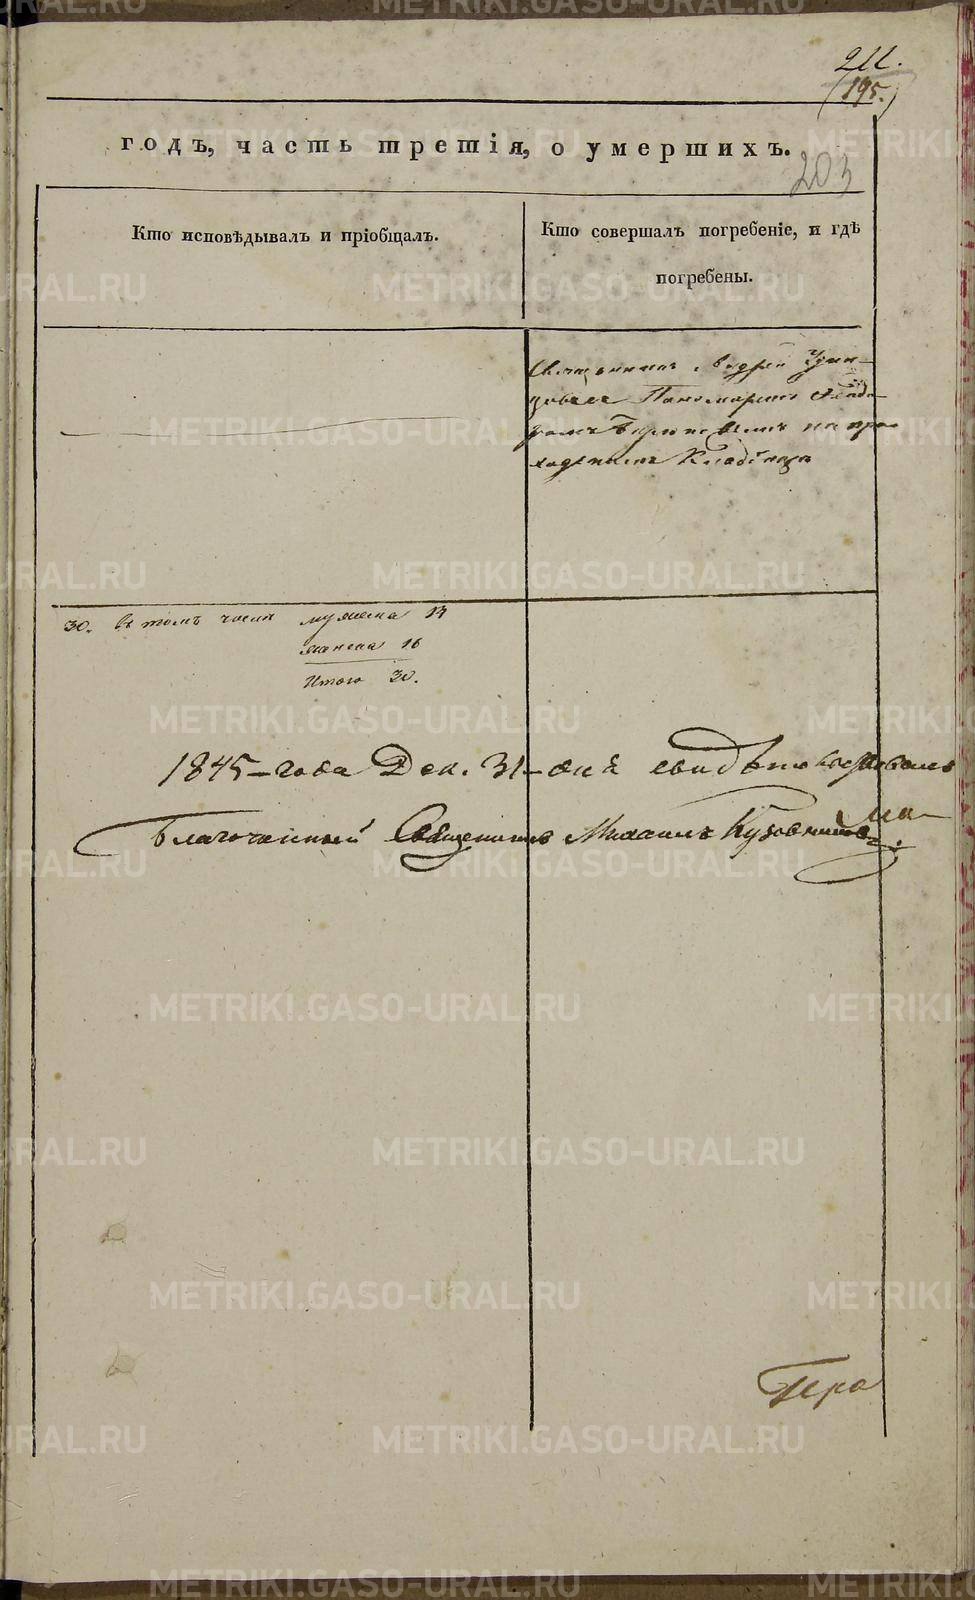 211.
195.
203
годъ, часть третія, о умершихъ.
Кто исповѣдывалъ и пріобщалъ.
Кто совершалъ погребеніе, и гдѣ
погребены.
Священникъ Андрей
Пономаремъ
на при
ходскомъ Кладбищѣ
30. въ томъ числѣ мужеска 14
женска 16
Итого 30.
1845-года Дек. 31-дня свидѣтельствовалъ
Благочинный Священникъ Михаилъ Кузовниковъ.
METRIKI.GASO-URAL.RU